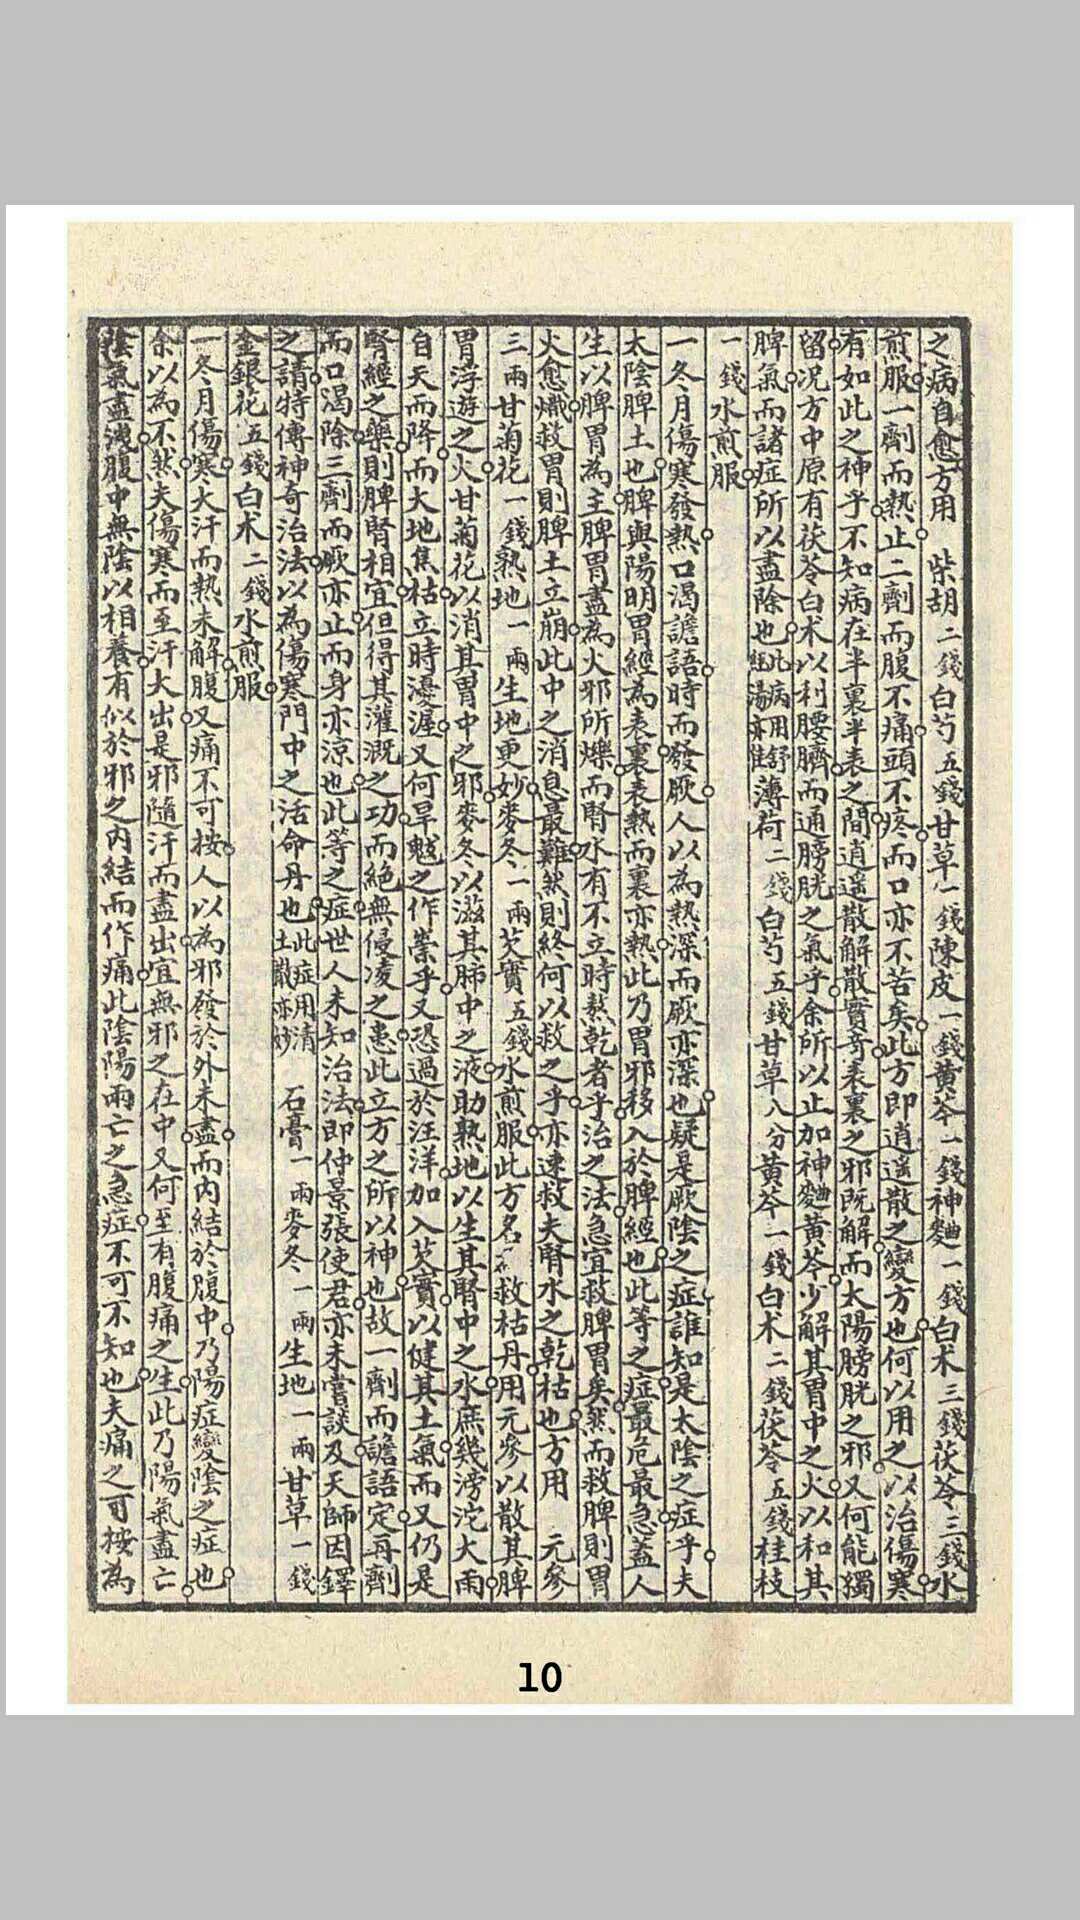 之病自愈方用　柴胡二錢白芍五錢甘草一錢陳皮一錢黃芩一錢神麯一錢白术三錢茯苓三錢水
煎服一劑而熱止二劑而腹不痛頭不疼而口亦不苦矣此方即逍遥散之變方也何以用之以治傷寒
有如此之神乎不知病在半裏半表之間逍遥散解散實奇表裏之邪既解而太陽膀胱之邪又何能獨
留况方中原有茯苓白术以利腰臍而通膀胱之氣乎余所以止加神麯黃芩少解其胃中之火以和其
脾氣而諸症所以盡除也此病用舒經湯亦佳薄荷二錢白芍五錢甘草八分黃芩一錢白术二錢茯苓五錢桂枝
一錢水煎服
一冬月傷寒發熱口渴譫語時而發厥人以為熱深而厥亦深也疑是厥陰之症誰知是太陰之症乎夫
太陰脾土也脾與陽明胃經為表裏表熱而裏亦熱此乃胃邪移入於脾經也此等之症最危最急蓋人
生以脾胃為主脾胃盡為火邪所爍而腎水有不立時熬乾者乎治之法急宜救脾胃矣然而救脾則胃
火愈熾救胃則脾土立崩此中之消息最難然則終何以救之乎亦速救夫腎水之乾枯也方用　元參
三兩甘菊花一錢熟地一兩生地更妙麥冬一兩芡實五錢水煎服此方名救枯丹用元參以散其脾
胃浮遊之火甘菊花以消其胃中之邪麥冬以滋其肺中之液助熟地以生其腎中之水庶幾滂沱大雨
自天而降而大地焦枯立時濅渥又何旱魃之作祟乎又恐過於汪洋加入芡實以健其土氣而又仍是
腎經之藥則脾腎相宜但得其灌溉之功而絕無侵凌之患此立方之所以神也故一劑而譫語定再劑
而口渴除三劑而厥亦止而身亦凉也此等之症世人未知治法即仲景張使君亦未嘗談及天師因鐸
之請特傳神奇治法以為傷寒門中之活命丹也此症用清土散亦妙　石膏一兩麥冬一兩生地一兩甘草一錢
金銀花五錢白术二錢水煎服
一冬月傷寒大汗而熱未解腹又痛不可按人以為邪發於外未盡而内結於腹中乃陽症變陰之症也
余以為不然夫傷寒而至汗大出是邪隨汗而盡出宜無邪之在中又何至有腹痛之生此乃陽氣盡亡
陰氣盡洩腹中無陰以相養有似於邪之内結而作痛此陰陽兩亡之急症不可不知也夫痛之可按為
10